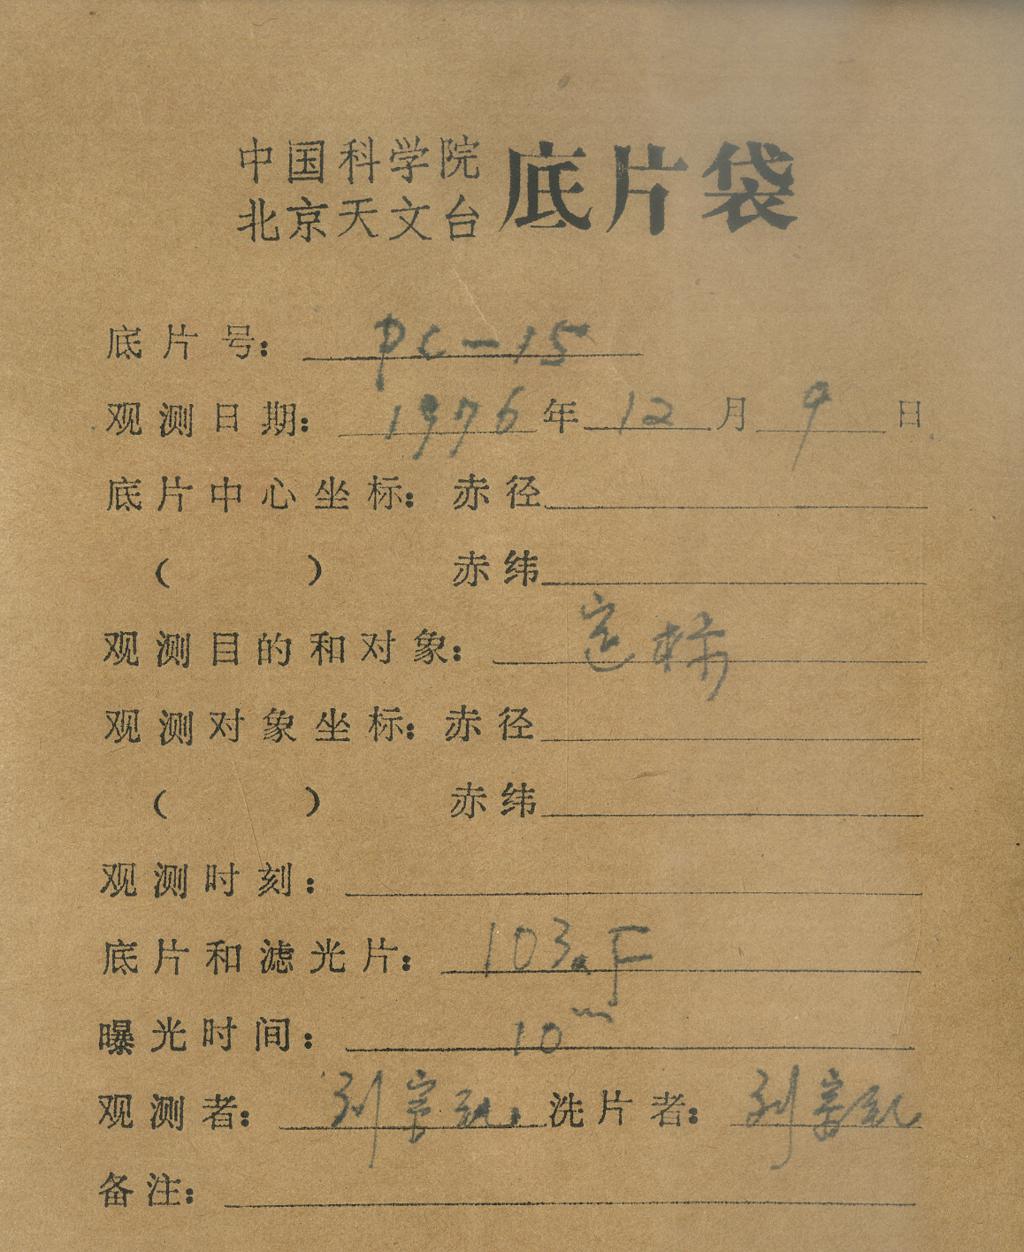 中国科学院
北京天文台 底片袋
底片号: PC-15
观测日期: 1976年12月9日
底片中心坐标: 赤径
( ) 赤纬
观测目的和对象: 定标
观测对象坐标: 赤径
( ) 赤纬
观测时刻:
底片和滤光片: 103aF
曝光时间: 10m
观测者: 刘宗 洗片者: 刘宗
备注: